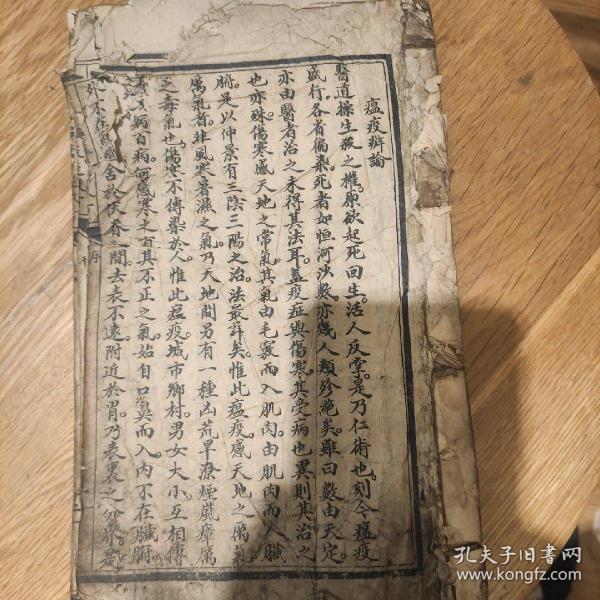 瘟疫辯論
醫道操生殺之權原欲起死回生活人反掌是乃仁術也刻今瘟疫
盛行各省傷染死者如恒河沙數亦幾人類殄絕矣雖曰數由天定
亦由醫者治之未得其法耳蓋疫症與傷寒其受病也異則其治之
也亦殊傷寒感天地之常氣其氣由毛竅而入肌肉由肌肉而入臟
腑是以仲景有三陰三陽之治法最詳矣惟此瘟疫感天地之厲氣
厲氣者非風寒暑濕之氣乃天地間另有一種凶荒旱潦煙嵐瘴厲
之毒氣也傷寒不傳染於人惟此瘟疫城市鄉村男女大小互相傳
病百病何感寒之有其不正之氣始自口鼻而入內不在臟腑
舍於伏脊之間去表不遠附近於胃乃表裏之分界是
孔夫子旧书网
www.kongfz.com